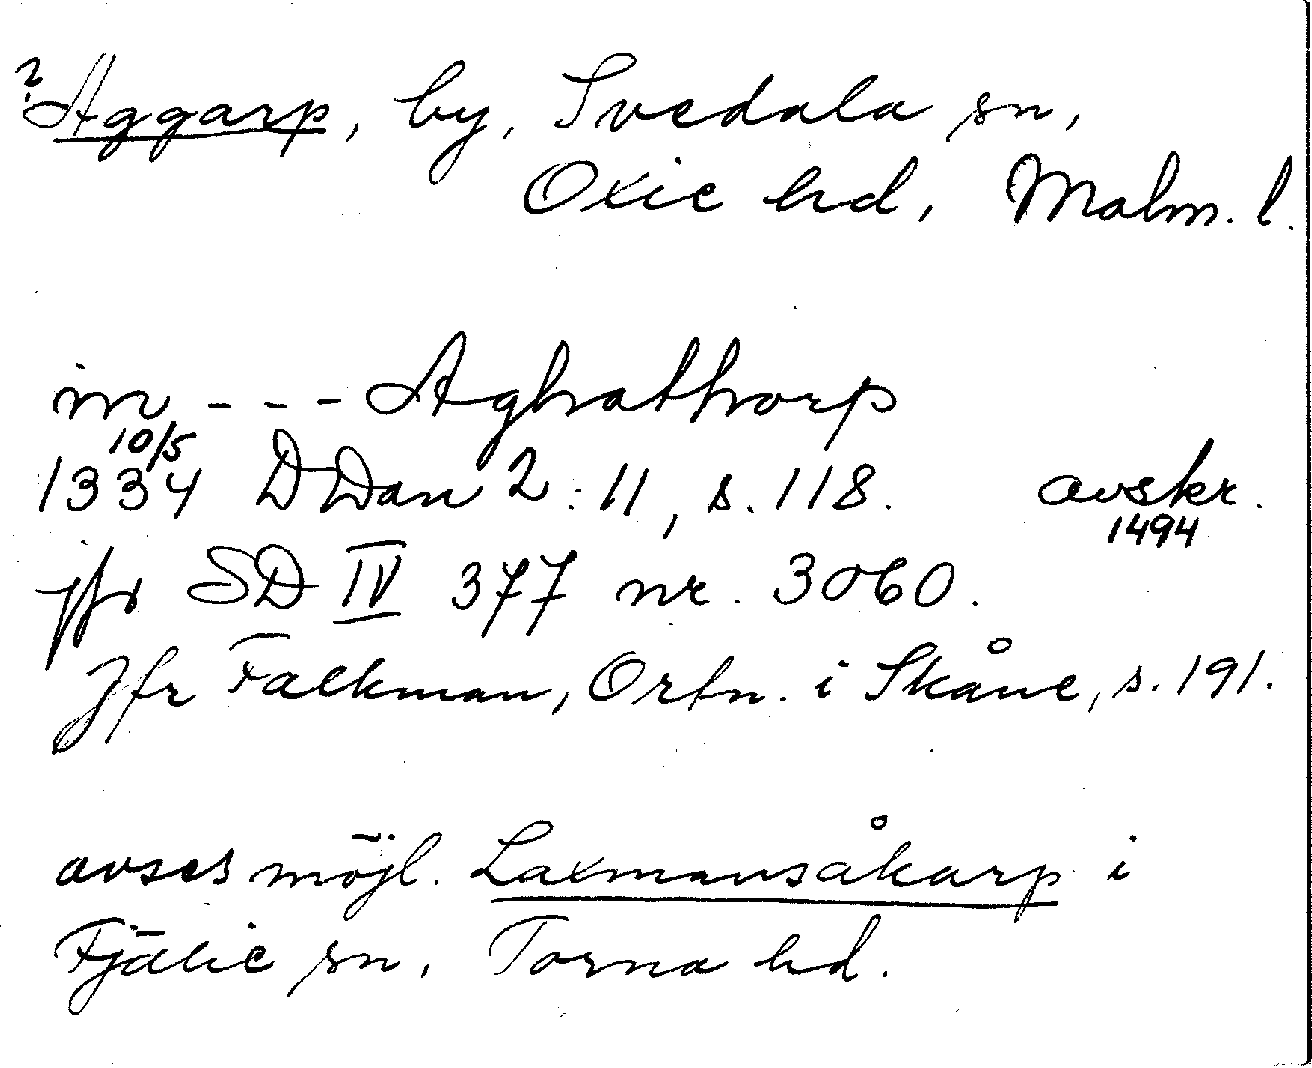 ? Aggarp, by, Svedala sn,
Oxie hd, Malm. l.
in - - - Aghathorp
10/5
1334 DDan 2 : 11, s. 118. avskr.
1494
jfr SD IV 377 nr. 3060.
Jfr Falkman, Ortn. i Skåne, s. 191.
avses möjl. Laxmansåkarp i
Fjälie sn, Torna hd.